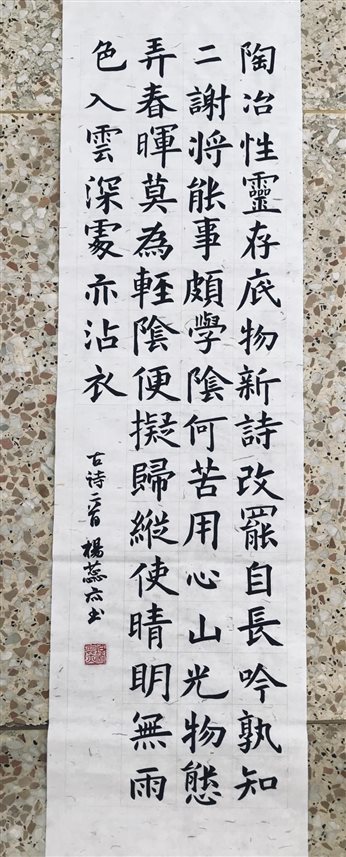 陶冶性靈存底物新詩改罷自長吟孰知
二謝將能事頗學陰何苦用心山光物態
弄春暉莫為輕陰便擬歸縱使晴明無雨
色入雲深處亦沾衣
古诗二首 楊蕊书